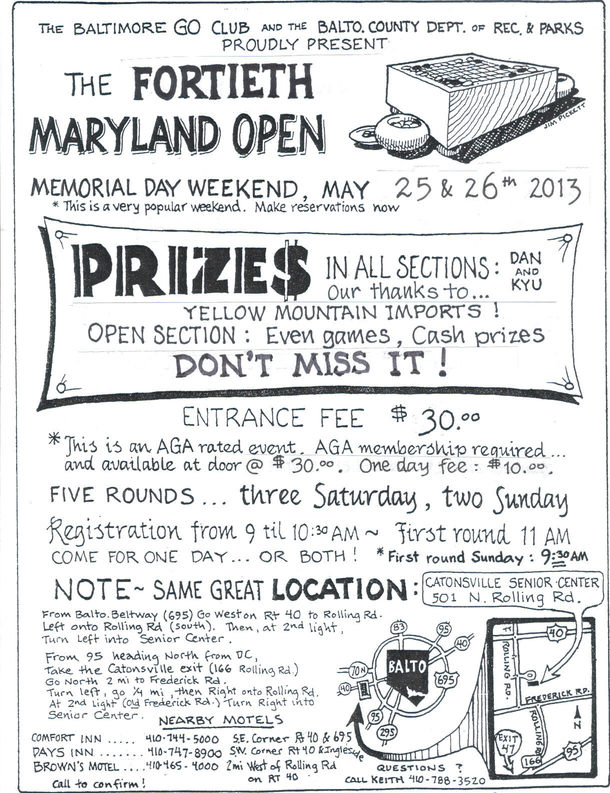 THE BALTIMORE GO CLUB AND THE BALTO. COUNTY DEPT. OF REC. & PARKS
PROUDLY PRESENT
THE FORTIETH
MARYLAND OPEN
JIM PICKETT
MEMORIAL DAY WEEKEND, MAY 25 & 26th 2013
* This is a very popular weekend. Make reservations now
PRIZE$ IN ALL SECTIONS: DAN
AND
KYU
Our thanks to...
YELLOW MOUNTAIN IMPORTS !
OPEN SECTION : Even games, Cash prizes
DON'T MISS IT !
ENTRANCE FEE $ 30.00
* This is an AGA rated event. AGA membership required...
and available at door @ $ 30.00. One day fee : $10.00.
FIVE ROUNDS ... three Saturday, two Sunday
Registration from 9 til 10:30 AM ~ First round 11 AM
COME FOR ONE DAY... OR BOTH ! * First round Sunday : 9:30 AM
NOTE ~ SAME GREAT LOCATION :
CATONSVILLE SENIOR CENTER
501 N. Rolling Rd.
From Balto. Beltway (695) Go West on Rt 40 to Rolling Rd.
Left onto Rolling Rd (South). Then, at 2nd light,
Turn Left into Senior Center.
From 95 heading North from DC,
Take the Catonsville exit (166 Rolling Rd.)
Go North 2 mi to Frederick Rd.
Turn left, go 1/4 mi, then Right onto Rolling Rd.
At 2nd Light (Old Frederick Rd.) Turn Right into
Senior Center.
NEARBY MOTELS
COMFORT INN ..... 410-744-5000 S.E. Corner Rt 40 & 695
DAYS INN ..... 410-747-8900 S.W. Corner Rt 40 & Ingleside
BROWN'S MOTEL .... 410-465-4000 2mi West of Rolling Rd
on RT 40
Call to confirm!
83
95
40
70N
40
BALTO
695
95
295
QUESTIONS ?
CALL KEITH 410-788-3520
40
ROLLING RD.
FREDERICK RD.
ROLLING RD
N
EXIT
47
166
95